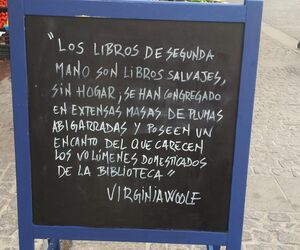 "LOS LIBROS DE SEGUNDA
MANO SON LIBROS SALVAJES,
SIN HOGAR; SE HAN CONGREGADO
EN EXTENSAS MASAS DE PLUMAS
ABIGARRADAS Y POSEEN UN
ENCANTO DEL QUE CARECEN
LOS VOLÚMENES DOMESTICADOS
DE LA BIBLIOTECA"
VIRGINIA WOOLF